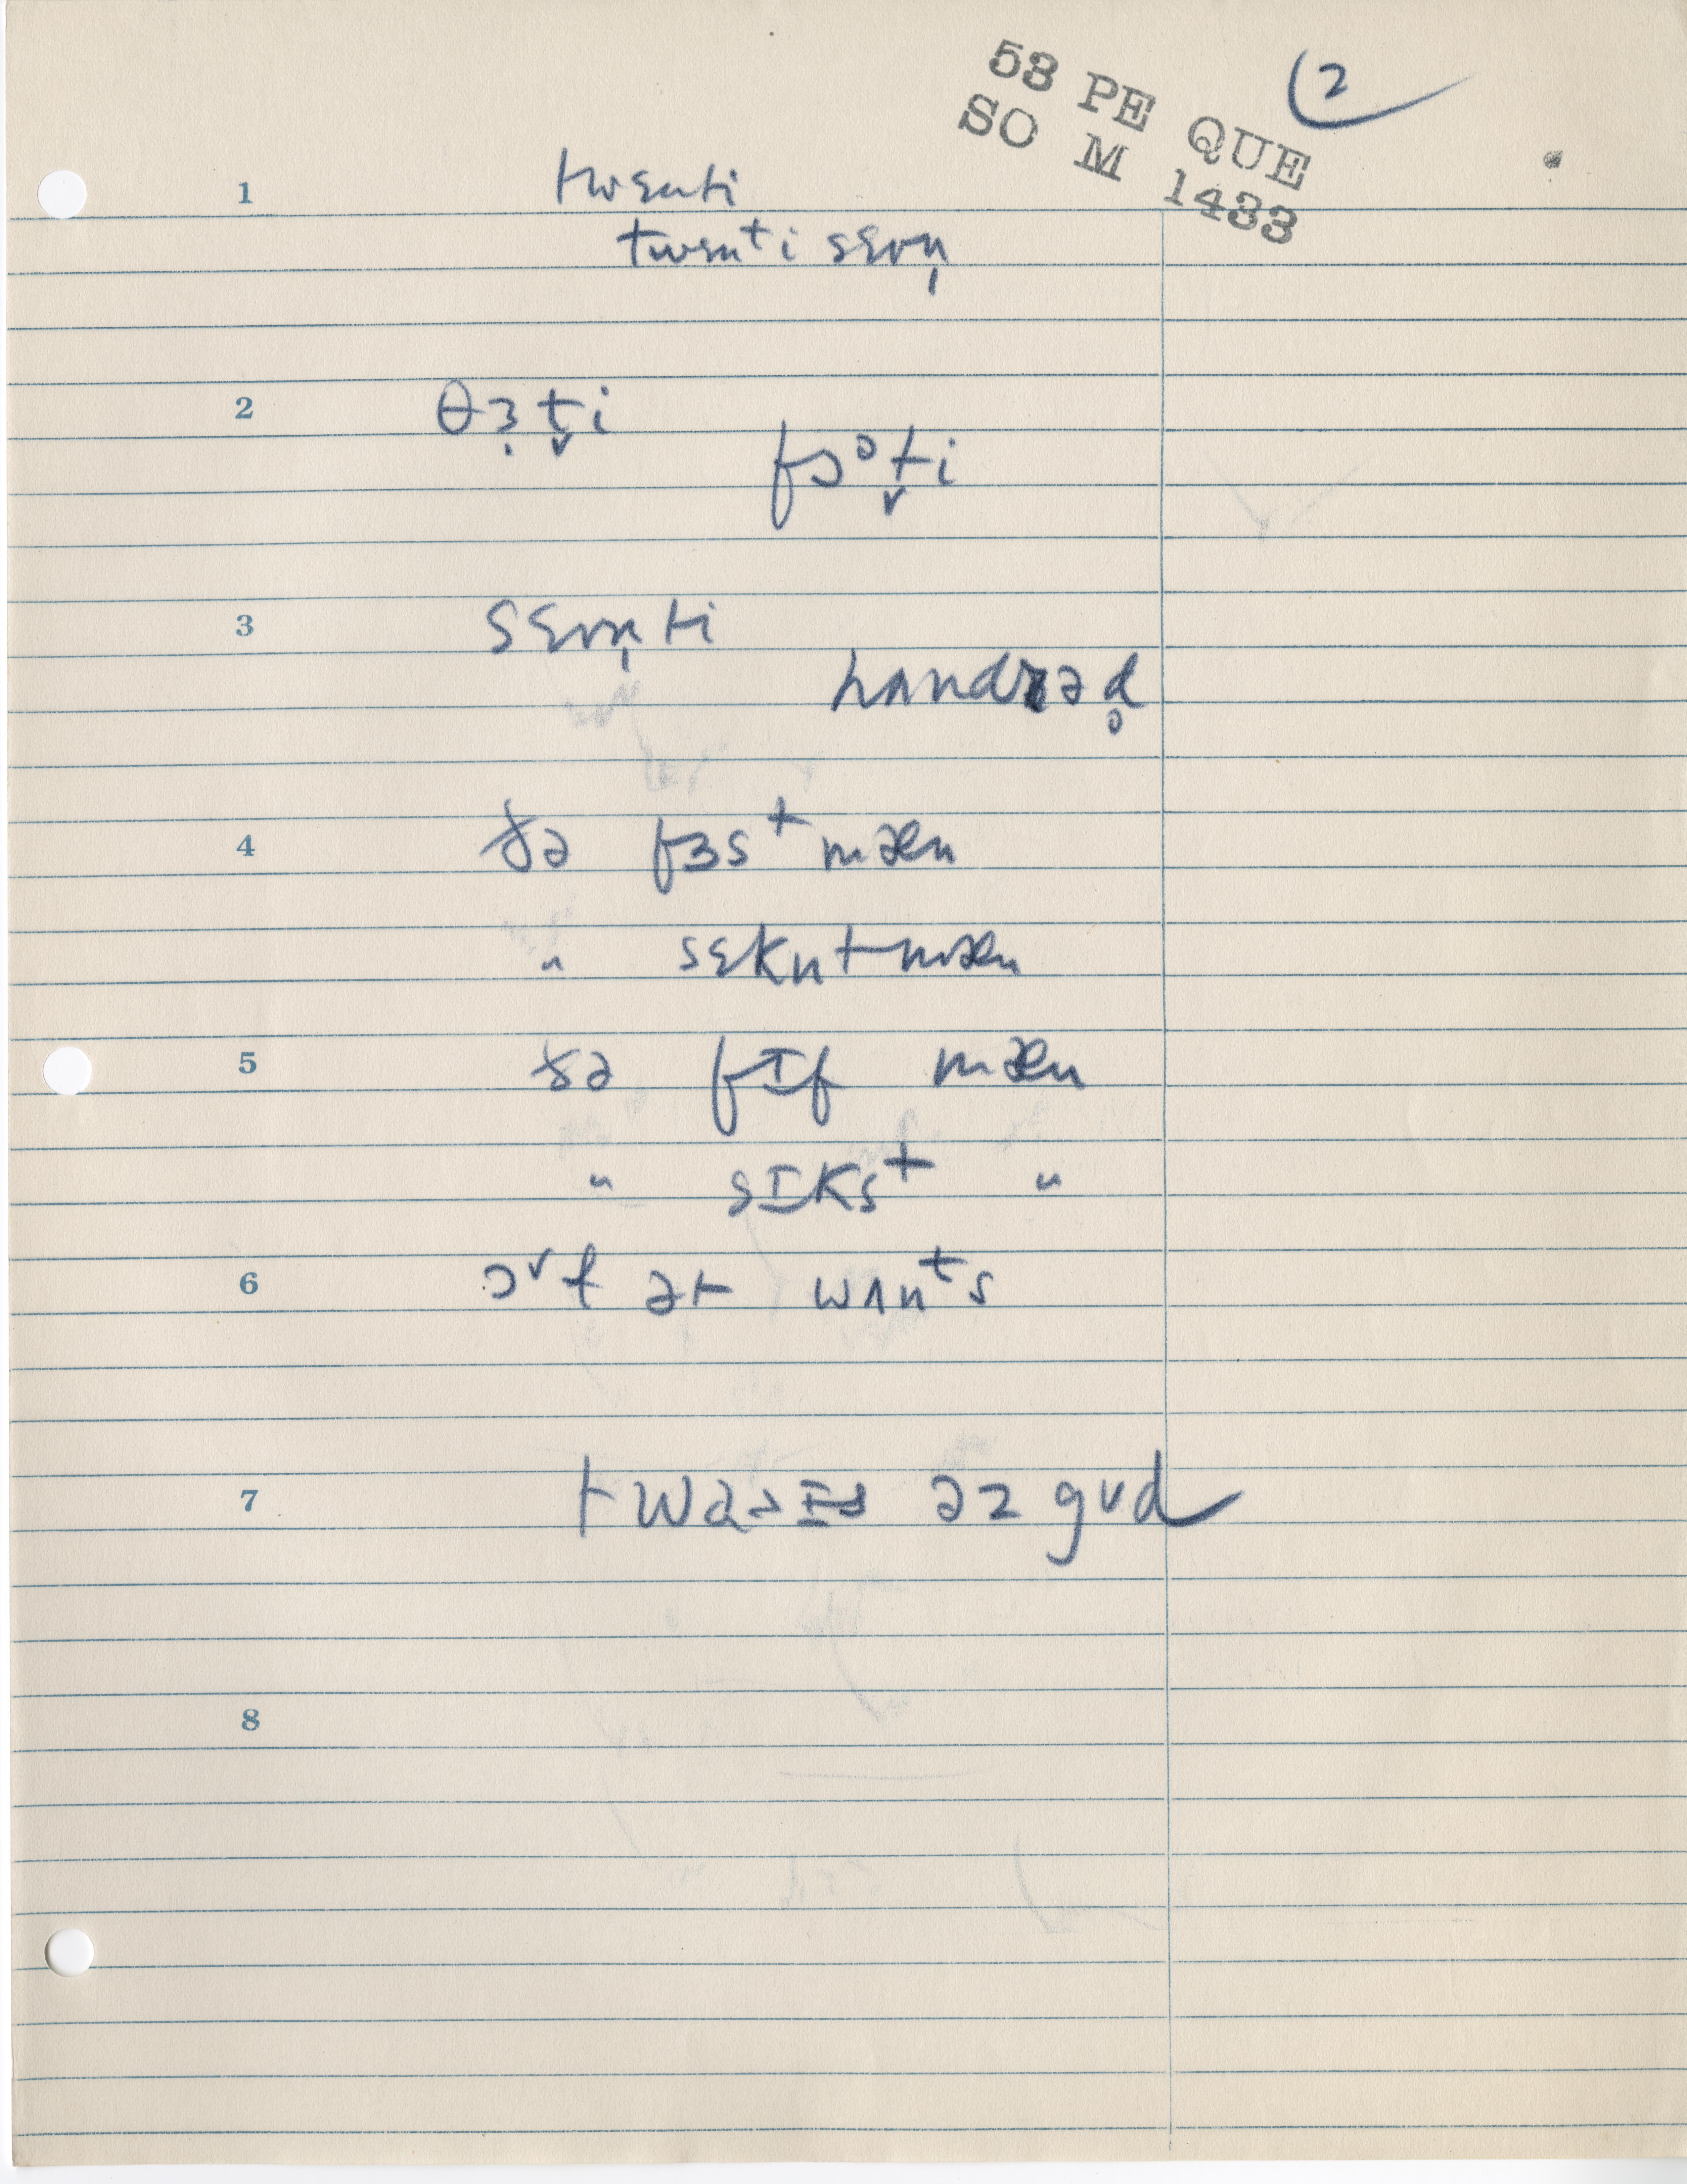 58 PE QUE
SO M 1433
2
1 twɛnti
twɛnti sɛvn̩
2 θɜ̣t̬i
fɔᵊt̬i
3 sɛvn̩ti
hʌndrəd̥
4 ðə fɜsᵗmæn
" sɛkntmæn
5 ðə fɪf mæn
" sɪksᵗ "
6 ət wʌnᵗs
7 əz gʊd
8